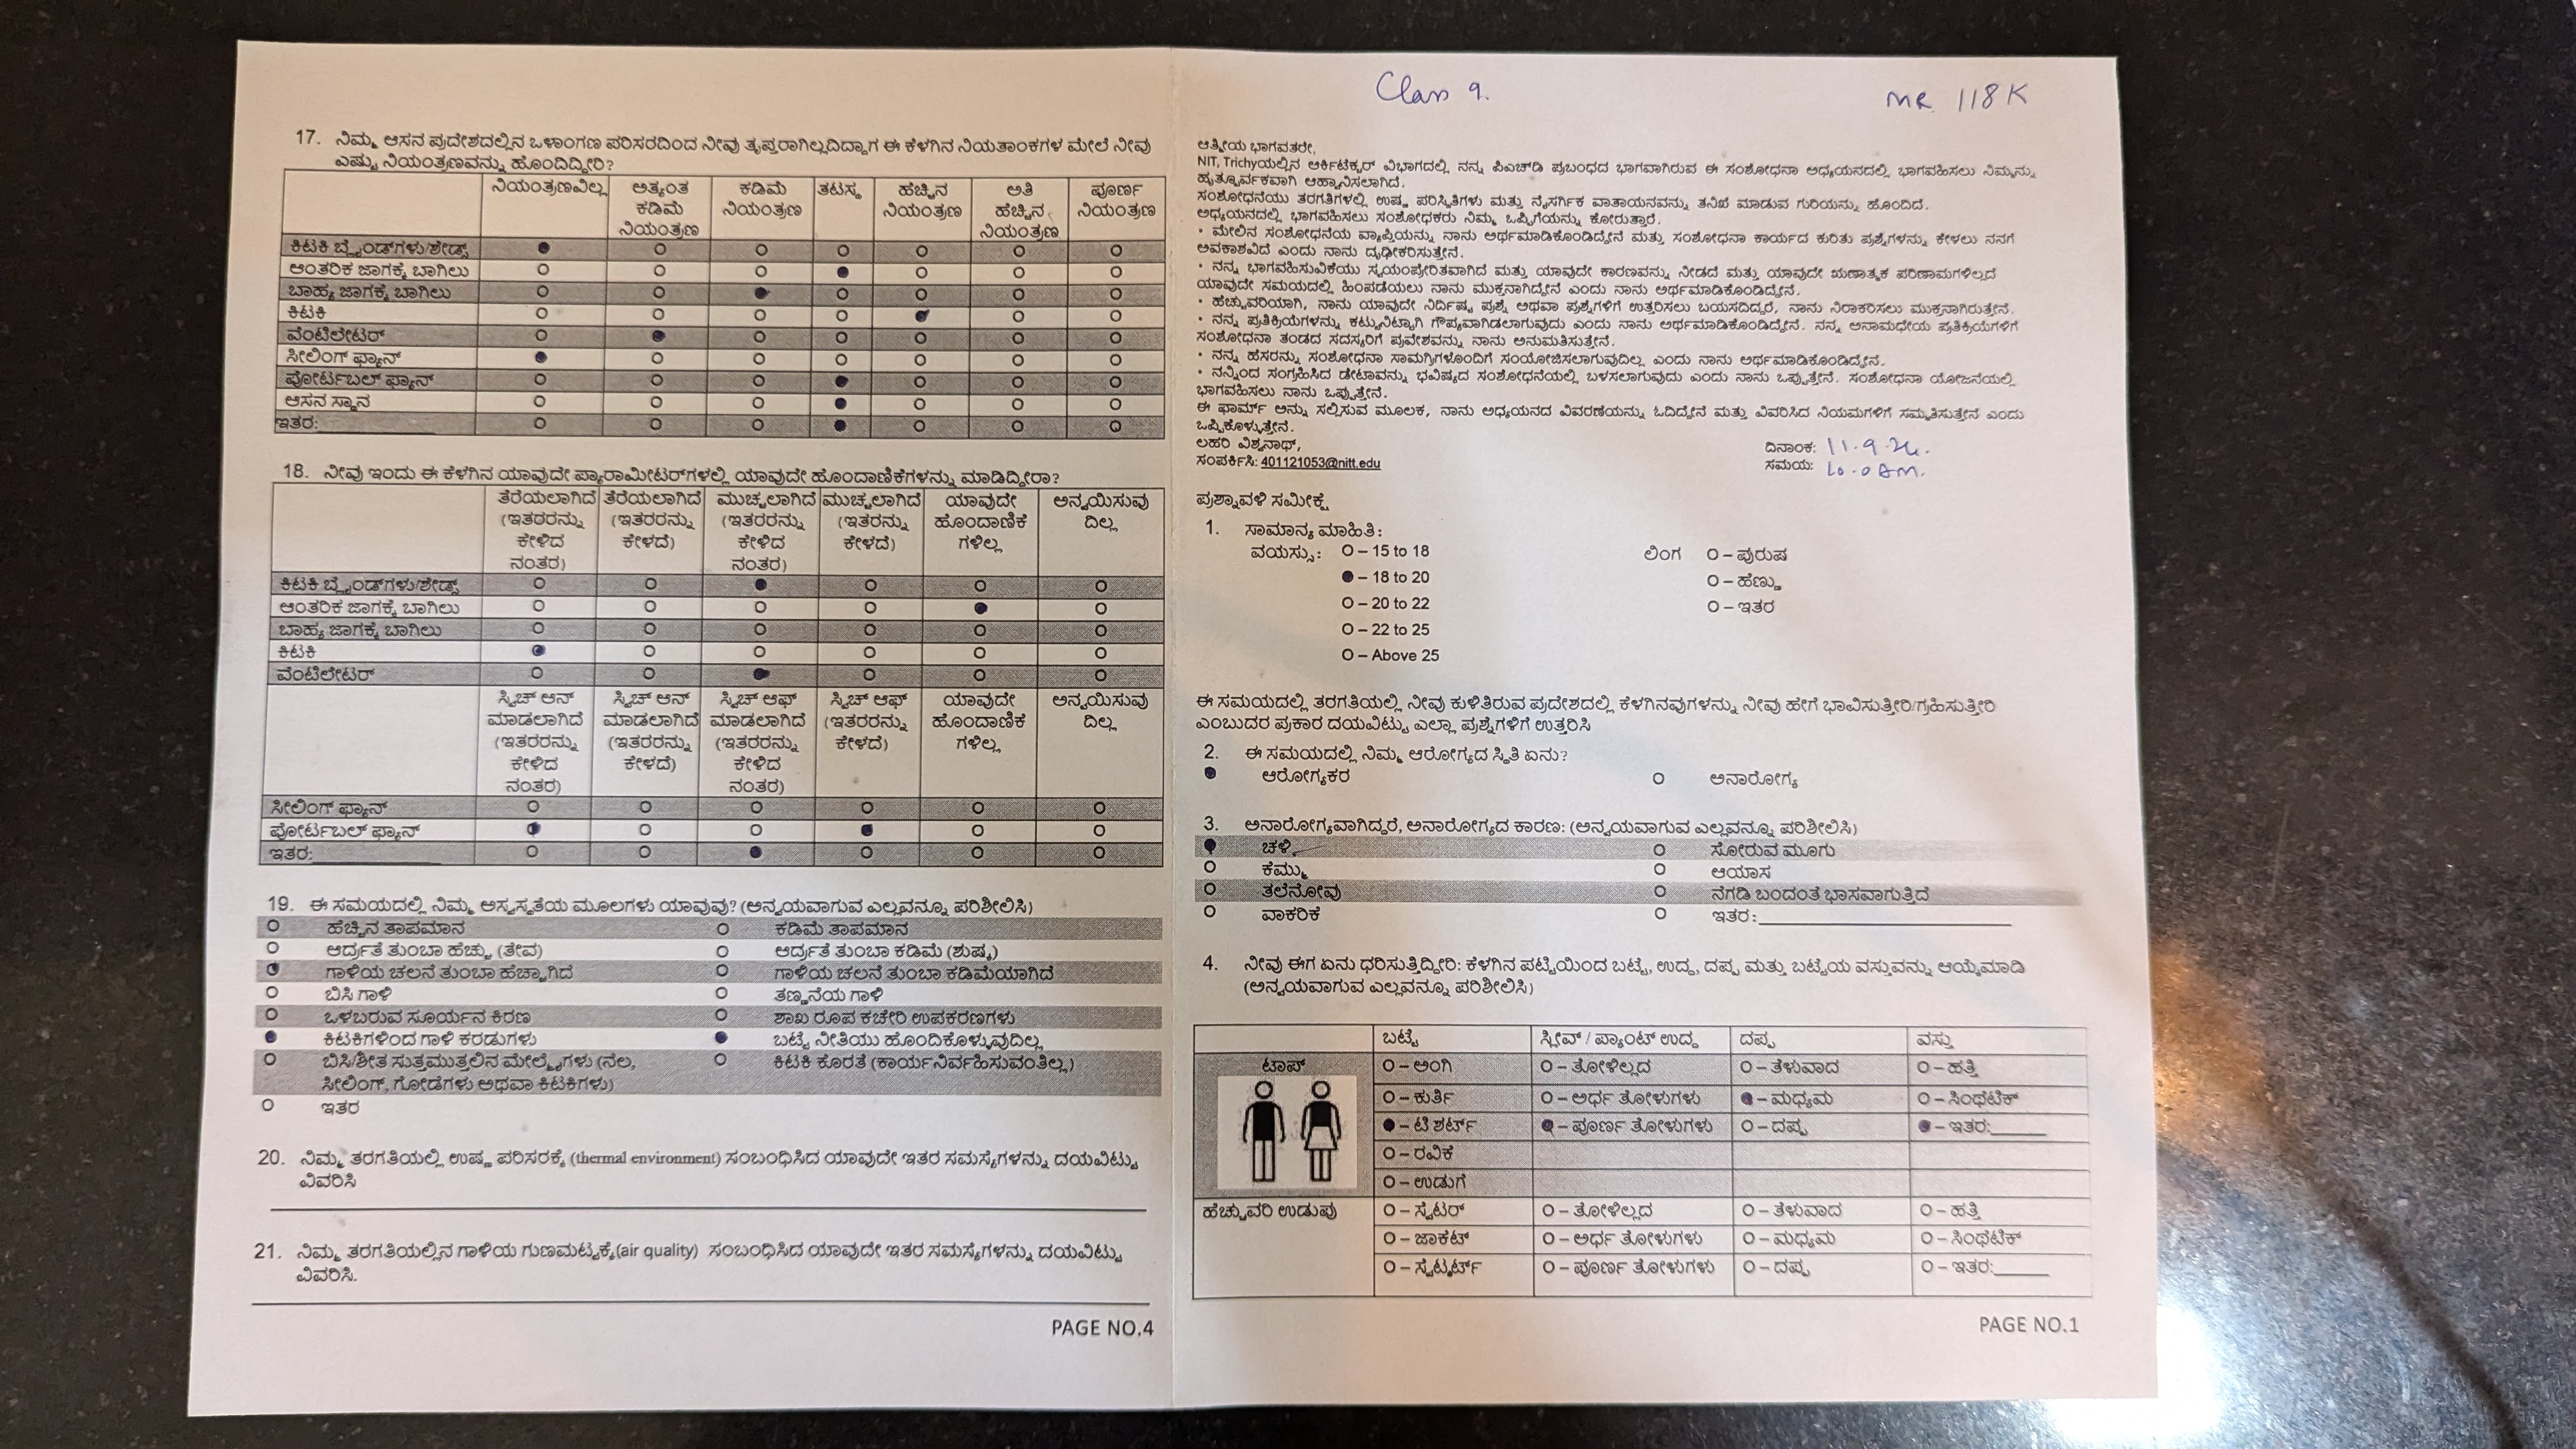 17. ನಿಮ್ಮ ಆಸನ ಪ್ರದೇಶದಲ್ಲಿನ ಒಳಾಂಗಣ ಪರಿಸರದಿಂದ ನೀವು ತೃಪ್ತರಾಗಿಲ್ಲದಿದ್ದಾಗ ಈ ಕೆಳಗಿನ ನಿಯತಾಂಕಗಳ ಮೇಲೆ ನೀವು
ಎಷ್ಟು ನಿಯಂತ್ರಣವನ್ನು ಹೊಂದಿದ್ದೀರಿ?
ನಿಯಂತ್ರಣವಿಲ್ಲ ಅತ್ಯಂತ ಕಡಿಮೆ ತಟಸ್ಥ ಹೆಚ್ಚಿನ ಅತಿ ಪೂರ್ಣ
ಕಡಿಮೆ ನಿಯಂತ್ರಣ ನಿಯಂತ್ರಣ ಹೆಚ್ಚಿನ ನಿಯಂತ್ರಣ
ನಿಯಂತ್ರಣ ನಿಯಂತ್ರಣ
ಕಿಟಕಿ ಬ್ಲೈಂಡ್‌ಗಳು/ಶೇಡ್ಸ್
ಆಂತರಿಕ ಜಾಗಕ್ಕೆ ಬಾಗಿಲು
ಬಾಹ್ಯ ಜಾಗಕ್ಕೆ ಬಾಗಿಲು
ಕಿಟಕಿ
ವೆಂಟಿಲೇಟರ್
ಸೀಲಿಂಗ್ ಫ್ಯಾನ್
ಪೋರ್ಟಬಲ್ ಫ್ಯಾನ್
ಆಸನ ಸ್ಥಾನ
ಇತರ:
18. ನೀವು ಇಂದು ಈ ಕೆಳಗಿನ ಯಾವುದೇ ಪ್ಯಾರಾಮೀಟರ್‌ಗಳಲ್ಲಿ ಯಾವುದೇ ಹೊಂದಾಣಿಕೆಗಳನ್ನು ಮಾಡಿದ್ದೀರಾ?
ತೆರೆಯಲಾಗಿದೆ ತೆರೆಯಲಾಗಿದೆ ಮುಚ್ಚಲಾಗಿದೆ ಮುಚ್ಚಲಾಗಿದೆ ಯಾವುದೇ ಅನ್ವಯಿಸುವು
(ಇತರರನ್ನು (ಇತರರನ್ನು (ಇತರರನ್ನು (ಇತರರನ್ನು ಹೊಂದಾಣಿಕೆ ದಿಲ್ಲ
ಕೇಳಿದ ಕೇಳದೆ) ಕೇಳಿದ ಕೇಳದೆ) ಗಳಿಲ್ಲ
ನಂತರ) ನಂತರ)
ಕಿಟಕಿ ಬ್ಲೈಂಡ್‌ಗಳು/ಶೇಡ್ಸ್
ಆಂತರಿಕ ಜಾಗಕ್ಕೆ ಬಾಗಿಲು
ಬಾಹ್ಯ ಜಾಗಕ್ಕೆ ಬಾಗಿಲು
ಕಿಟಕಿ
ವೆಂಟಿಲೇಟರ್
ಸ್ವಿಚ್ ಆನ್ ಸ್ವಿಚ್ ಆನ್ ಸ್ವಿಚ್ ಆಫ್ ಸ್ವಿಚ್ ಆಫ್ ಯಾವುದೇ ಅನ್ವಯಿಸುವು
ಮಾಡಲಾಗಿದೆ ಮಾಡಲಾಗಿದೆ ಮಾಡಲಾಗಿದೆ (ಇತರರನ್ನು ಹೊಂದಾಣಿಕೆ ದಿಲ್ಲ
(ಇತರರನ್ನು (ಇತರರನ್ನು (ಇತರರನ್ನು ಕೇಳದೆ) ಗಳಿಲ್ಲ
ಕೇಳಿದ ಕೇಳದೆ) ಕೇಳಿದ
ನಂತರ) ನಂತರ)
ಸೀಲಿಂಗ್ ಫ್ಯಾನ್
ಪೋರ್ಟಬಲ್ ಫ್ಯಾನ್
ಇತರ:
19. ಈ ಸಮಯದಲ್ಲಿ ನಿಮ್ಮ ಅಸ್ವಸ್ಥತೆಯ ಮೂಲಗಳು ಯಾವುವು? (ಅನ್ವಯವಾಗುವ ಎಲ್ಲವನ್ನೂ ಪರಿಶೀಲಿಸಿ)
ಹೆಚ್ಚಿನ ತಾಪಮಾನ ಕಡಿಮೆ ತಾಪಮಾನ
ಆರ್ದ್ರತೆ ತುಂಬಾ ಹೆಚ್ಚು (ತೇವ) ಆರ್ದ್ರತೆ ತುಂಬಾ ಕಡಿಮೆ (ಶುಷ್ಕ)
ಗಾಳಿಯ ಚಲನೆ ತುಂಬಾ ಹೆಚ್ಚಾಗಿದೆ ಗಾಳಿಯ ಚಲನೆ ತುಂಬಾ ಕಡಿಮೆಯಾಗಿದೆ
ಬಿಸಿ ಗಾಳಿ ತಣ್ಣನೆಯ ಗಾಳಿ
ಒಳಬರುವ ಸೂರ್ಯನ ಕಿರಣ ಶಾಖ ರೂಪ ಕಚೇರಿ ಉಪಕರಣಗಳು
ಕಿಟಕಿಗಳಿಂದ ಗಾಳಿ ಕರಡುಗಳು ಬಟ್ಟೆ ನೀತಿಯು ಹೊಂದಿಕೊಳ್ಳುವುದಿಲ್ಲ
ಬಿಸಿ/ಶೀತ ಸುತ್ತಮುತ್ತಲಿನ ಮೇಲ್ಮೈಗಳು (ನೆಲ, ಕಿಟಕಿ ಕೊರತೆ (ಕಾರ್ಯನಿರ್ವಹಿಸುವಂತಿಲ್ಲ)
ಸೀಲಿಂಗ್, ಗೋಡೆಗಳು ಅಥವಾ ಕಿಟಕಿಗಳು)
ಇತರ
20. ನಿಮ್ಮ ತರಗತಿಯಲ್ಲಿ ಉಷ್ಣ ಪರಿಸರಕ್ಕೆ (thermal environment) ಸಂಬಂಧಿಸಿದ ಯಾವುದೇ ಇತರ ಸಮಸ್ಯೆಗಳನ್ನು ದಯವಿಟ್ಟು
ವಿವರಿಸಿ
21. ನಿಮ್ಮ ತರಗತಿಯಲ್ಲಿನ ಗಾಳಿಯ ಗುಣಮಟ್ಟಕ್ಕೆ(air quality) ಸಂಬಂಧಿಸಿದ ಯಾವುದೇ ಇತರ ಸಮಸ್ಯೆಗಳನ್ನು ದಯವಿಟ್ಟು
ವಿವರಿಸಿ.
PAGE NO.4
Class 9. MR 118K
ಆತ್ಮೀಯ ಭಾಗವತರೇ,
NIT, Trichyಯಲ್ಲಿನ ಆರ್ಕಿಟೆಕ್ಚರ್ ವಿಭಾಗದಲ್ಲಿ ನನ್ನ ಪಿಎಚ್‌ಡಿ ಪ್ರಬಂಧದ ಭಾಗವಾಗಿರುವ ಈ ಸಂಶೋಧನಾ ಅಧ್ಯಯನದಲ್ಲಿ ಭಾಗವಹಿಸಲು ನಿಮ್ಮನ್ನು
ಹೃತ್ಪೂರ್ವಕವಾಗಿ ಆಹ್ವಾನಿಸಲಾಗಿದೆ.
ಸಂಶೋಧನೆಯು ತರಗತಿಗಳಲ್ಲಿ ಉಷ್ಣ ಪರಿಸ್ಥಿತಿಗಳು ಮತ್ತು ನೈಸರ್ಗಿಕ ವಾತಾಯನವನ್ನು ತನಿಖೆ ಮಾಡುವ ಗುರಿಯನ್ನು ಹೊಂದಿದೆ.
ಅಧ್ಯಯನದಲ್ಲಿ ಭಾಗವಹಿಸಲು ಸಂಶೋಧಕರು ನಿಮ್ಮ ಒಪ್ಪಿಗೆಯನ್ನು ಕೋರುತ್ತಾರೆ.
• ಮೇಲಿನ ಸಂಶೋಧನೆಯ ವ್ಯಾಪ್ತಿಯನ್ನು ನಾನು ಅರ್ಥಮಾಡಿಕೊಂಡಿದ್ದೇನೆ ಮತ್ತು ಸಂಶೋಧನಾ ಕಾರ್ಯದ ಕುರಿತು ಪ್ರಶ್ನೆಗಳನ್ನು ಕೇಳಲು ನನಗೆ
ಅವಕಾಶವಿದೆ ಎಂದು ನಾನು ದೃಢೀಕರಿಸುತ್ತೇನೆ.
• ನನ್ನ ಭಾಗವಹಿಸುವಿಕೆಯು ಸ್ವಯಂಪ್ರೇರಿತವಾಗಿದೆ ಮತ್ತು ಯಾವುದೇ ಕಾರಣವನ್ನು ನೀಡದೆ ಮತ್ತು ಯಾವುದೇ ಋಣಾತ್ಮಕ ಪರಿಣಾಮಗಳಿಲ್ಲದೆ
ಯಾವುದೇ ಸಮಯದಲ್ಲಿ ಹಿಂಪಡೆಯಲು ನಾನು ಮುಕ್ತನಾಗಿದ್ದೇನೆ ಎಂದು ನಾನು ಅರ್ಥಮಾಡಿಕೊಂಡಿದ್ದೇನೆ.
• ಹೆಚ್ಚುವರಿಯಾಗಿ, ನಾನು ಯಾವುದೇ ನಿರ್ದಿಷ್ಟ ಪ್ರಶ್ನೆ ಅಥವಾ ಪ್ರಶ್ನೆಗಳಿಗೆ ಉತ್ತರಿಸಲು ಬಯಸದಿದ್ದರೆ, ನಾನು ನಿರಾಕರಿಸಲು ಮುಕ್ತನಾಗಿರುತ್ತೇನೆ.
• ನನ್ನ ಪ್ರತಿಕ್ರಿಯೆಗಳನ್ನು ಕಟ್ಟುನಿಟ್ಟಾಗಿ ಗೌಪ್ಯವಾಗಿಡಲಾಗುವುದು ಎಂದು ನಾನು ಅರ್ಥಮಾಡಿಕೊಂಡಿದ್ದೇನೆ. ನನ್ನ ಅನಾಮಧೇಯ ಪ್ರತಿಕ್ರಿಯೆಗಳಿಗೆ
ಸಂಶೋಧನಾ ತಂಡದ ಸದಸ್ಯರಿಗೆ ಪ್ರವೇಶವನ್ನು ನಾನು ಅನುಮತಿಸುತ್ತೇನೆ.
• ನನ್ನ ಹೆಸರನ್ನು ಸಂಶೋಧನಾ ಸಾಮಗ್ರಿಗಳೊಂದಿಗೆ ಸಂಯೋಜಿಸಲಾಗುವುದಿಲ್ಲ ಎಂದು ನಾನು ಅರ್ಥಮಾಡಿಕೊಂಡಿದ್ದೇನೆ.
• ನನ್ನಿಂದ ಸಂಗ್ರಹಿಸಿದ ಡೇಟಾವನ್ನು ಭವಿಷ್ಯದ ಸಂಶೋಧನೆಯಲ್ಲಿ ಬಳಸಲಾಗುವುದು ಎಂದು ನಾನು ಒಪ್ಪುತ್ತೇನೆ. ಸಂಶೋಧನಾ ಯೋಜನೆಯಲ್ಲಿ
ಭಾಗವಹಿಸಲು ನಾನು ಒಪ್ಪುತ್ತೇನೆ.
ಈ ಫಾರ್ಮ್ ಅನ್ನು ಸಲ್ಲಿಸುವ ಮೂಲಕ, ನಾನು ಅಧ್ಯಯನದ ವಿವರಣೆಯನ್ನು ಓದಿದ್ದೇನೆ ಮತ್ತು ವಿವರಿಸಿದ ನಿಯಮಗಳಿಗೆ ಸಮ್ಮತಿಸುತ್ತೇನೆ ಎಂದು
ಒಪ್ಪಿಕೊಳ್ಳುತ್ತೇನೆ.
ಲಹರಿ ವಿಶ್ವನಾಥ್, ದಿನಾಂಕ: 11.9.24.
ಸಂಪರ್ಕಿಸಿ: 401121053@nitt.edu ಸಮಯ: 10.0 AM.
ಪ್ರಶ್ನಾವಳಿ ಸಮೀಕ್ಷೆ
1. ಸಾಮಾನ್ಯ ಮಾಹಿತಿ:
ವಯಸ್ಸು: O – 15 to 18 ಲಿಂಗ O – ಪುರುಷ
– 18 to 20 O – ಹೆಣ್ಣು
O – 20 to 22 O – ಇತರ
O – 22 to 25
O – Above 25
ಈ ಸಮಯದಲ್ಲಿ ತರಗತಿಯಲ್ಲಿ ನೀವು ಕುಳಿತಿರುವ ಪ್ರದೇಶದಲ್ಲಿ ಕೆಳಗಿನವುಗಳನ್ನು ನೀವು ಹೇಗೆ ಭಾವಿಸುತ್ತೀರಿ/ಗ್ರಹಿಸುತ್ತೀರಿ
ಎಂಬುದರ ಪ್ರಕಾರ ದಯವಿಟ್ಟು ಎಲ್ಲಾ ಪ್ರಶ್ನೆಗಳಿಗೆ ಉತ್ತರಿಸಿ
2. ಈ ಸಮಯದಲ್ಲಿ ನಿಮ್ಮ ಆರೋಗ್ಯದ ಸ್ಥಿತಿ ಏನು?
ಆರೋಗ್ಯಕರ ಅನಾರೋಗ್ಯ
3. ಅನಾರೋಗ್ಯವಾಗಿದ್ದರೆ, ಅನಾರೋಗ್ಯದ ಕಾರಣ: (ಅನ್ವಯವಾಗುವ ಎಲ್ಲವನ್ನೂ ಪರಿಶೀಲಿಸಿ)
ಚಳಿ ಸೋರುವ ಮೂಗು
ಕೆಮ್ಮು ಆಯಾಸ
ತಲೆನೋವು ನೆಗಡಿ ಬಂದಂತೆ ಭಾಸವಾಗುತ್ತಿದೆ
ವಾಕರಿಕೆ ಇತರ:
4. ನೀವು ಈಗ ಏನು ಧರಿಸುತ್ತಿದ್ದೀರಿ: ಕೆಳಗಿನ ಪಟ್ಟಿಯಿಂದ ಬಟ್ಟೆ, ಉದ್ದ, ದಪ್ಪ ಮತ್ತು ಬಟ್ಟೆಯ ವಸ್ತುವನ್ನು ಆಯ್ಕೆಮಾಡಿ
(ಅನ್ವಯವಾಗುವ ಎಲ್ಲವನ್ನೂ ಪರಿಶೀಲಿಸಿ)
ಬಟ್ಟೆ ಸ್ಲೀವ್ / ಪ್ಯಾಂಟ್ ಉದ್ದ ದಪ್ಪ ವಸ್ತು
ಟಾಪ್ O – ಅಂಗಿ O – ತೋಳಿಲ್ಲದ O – ತೆಳುವಾದ O – ಹತ್ತಿ
O – ಕುರ್ತಿ O – ಅರ್ಧ ತೋಳುಗಳು – ಮಧ್ಯಮ O – ಸಿಂಥೆಟಿಕ್
– ಟಿ ಶರ್ಟ್ – ಪೂರ್ಣ ತೋಳುಗಳು O – ದಪ್ಪ – ಇತರ:
O – ರವಿಕೆ
O – ಉಡುಗೆ
ಹೆಚ್ಚುವರಿ ಉಡುಪು O – ಸ್ವೆಟರ್ O – ತೋಳಿಲ್ಲದ O – ತೆಳುವಾದ O – ಹತ್ತಿ
O – ಜಾಕೆಟ್ O – ಅರ್ಧ ತೋಳುಗಳು O – ಮಧ್ಯಮ O – ಸಿಂಥೆಟಿಕ್
O – ಸ್ವೆಟ್ಶರ್ಟ್ O – ಪೂರ್ಣ ತೋಳುಗಳು O – ದಪ್ಪ O – ಇತರ:
PAGE NO.1